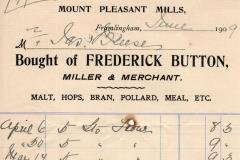 MOUNT PLEASANT MILLS,
Framlingham, June 1909
M Jas
Bought of FREDERICK BUTTON,
MILLER & MERCHANT.
MALT, HOPS, BRAN, POLLARD, MEAL, ETC.
April 6 5 Sto 8
" 20 5 " " 9
May 14 5 " " 9